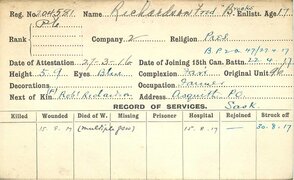 Reg. No. 204581 Name. Richardson Fred "Bruce" Enlist. Age 17
Rank Pte Company. 2 Religion Pres
B.P.2.a 47/27-4-17
Date of Attestation 27-3-16 Date of Joining 15th Can. Batta. 22.4.17
Height 5.9 Eyes Blue Complexion Fair Original Unit
Decorations Occupation Farmer
Next of Kin (F) Robt Richardson Address. Asquith PO.
Sask.
RECORD OF SERVICES.
Killed Wounded Died of W. Missing Prisoner Hospital Rejoined Struck off
15.8.17 (multiple gsw) 15-8-17 30.8.17